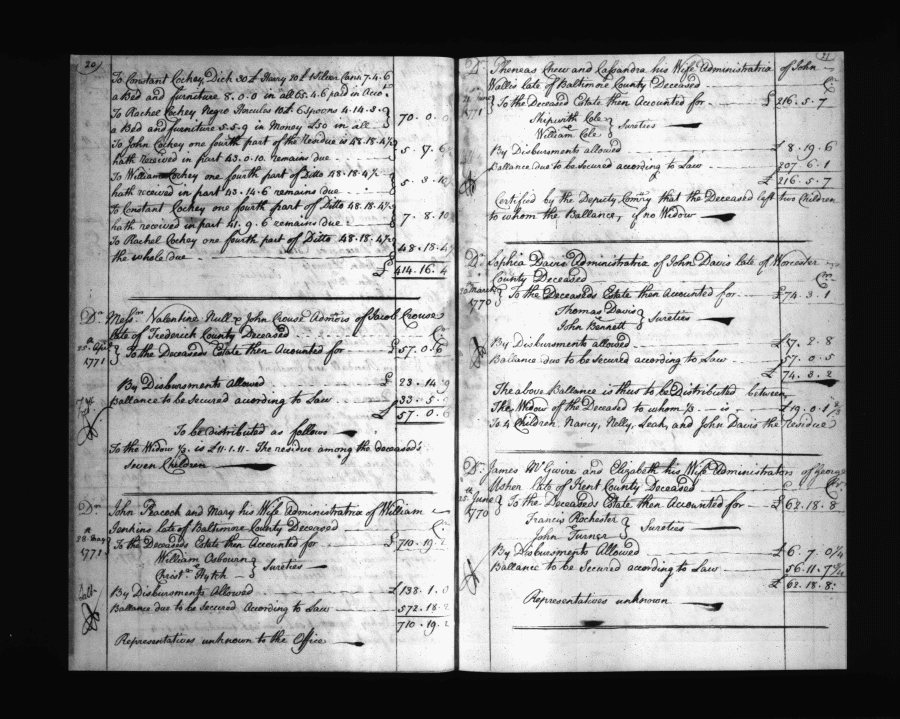 20
To Constant Cockey, Dick 30£ Harry 20£ 1 Silver Cann 7.4.6
a Bed and furniture 8.0.0 in all 65.4.6 paid in
To Rachel Cockey Negro Hercules 10£. 6 Spoons 4.14.3
a Bed and furniture 5.5.9 in Money £50 in all 70.0.0
To John Cockey one fourth part of the Residue is 48.18.4½
hath Received in part 43.0.10. remains due 5.
To William Cockey one fourth part of Ditto 48.18.4½
hath received in part 43.14.6 remains due 5.3.10
To Constant Cockey one fourth part of Ditto 48.18.4½
hath received in part 41.9.6 remains due 7.8.10
To Rachel Cockey one fourth part of Ditto 48.18.4½
the whole due 48.18.4½
£ 414.16.4
Dr. Messrs. Valentine Null & John Crouse Admors of Jacob Crouse
late of Frederick County Deceased Cr.
1771
To the Deceaseds Estate then Acounted for £ 57.0.6
By Disbursments Allowed £ 23.14.9
Ballance to be Secured acording to Law 33.5.
£ 57.0.6
To be distributed as follows
To the Widow ⅓ is £11.1.11. The residue among the deceased's
Seven Children
Dr. John Peacock and Mary his Wife Administratrix of William
Jenkins late of Baltimore County Deceased Cr.
28 May
1771
To the Deceaseds Estate then Accounted for £ 710.19.2
William Osbourn
Christr. Hytch
Sureties
By Disbursments Allowed £ 138.1.0
Ballance due to be Secured According to Law 572.18.2
710.19.2
Representatives unknown to the Office
21
Dr. Thomas Chew and Cassandra his Wife Administratrix of John
Wallis late of Baltimore County Deceased Cr.
1771
To the Deceased Estate then Accounted for £ 216.5.7
Shipwith Cole
William Cole
Sureties
By Disbursments allowed £ 8.19.6
Ballance due to be Secured according to Law 207.6.1
£ 216.5.7
Certified by the Deputy Comry that the Deceased left two Children
to whom the Ballance, if no Widow
Dr. Sophia Davis Administratrix of John Davis late of Worcester
County Deceased Cr.
March
1770
To the Deceaseds Estate then Accounted for £ 74.3.1
Thomas Davis
John Bennett
Sureties
By Disbursments allowed £ 17.2.8
Ballance due to be Secured according to Law 57.0.5
£ 74.3.2
The above Ballance is thus to be Distributed between,
The Widow of the Deceased to whom ⅓ is £19.0.1
To 4 Children. Nancy, Nelly, Leah, and John Davis the Residue
Dr. James McGwire and Elizabeth his Wife Administrators of George
Usher late of Kent County Deceased Cr.
25 June
1770
To the Deceaseds Estate then Accounted for £ 62.18.8
Francis Rochester
John Turner
Sureties
By Disbursments Allowed £ 6.7.0¼
Ballance to be Secured according to Law 56.11.7
£ 62.18.8
Representatives unknown